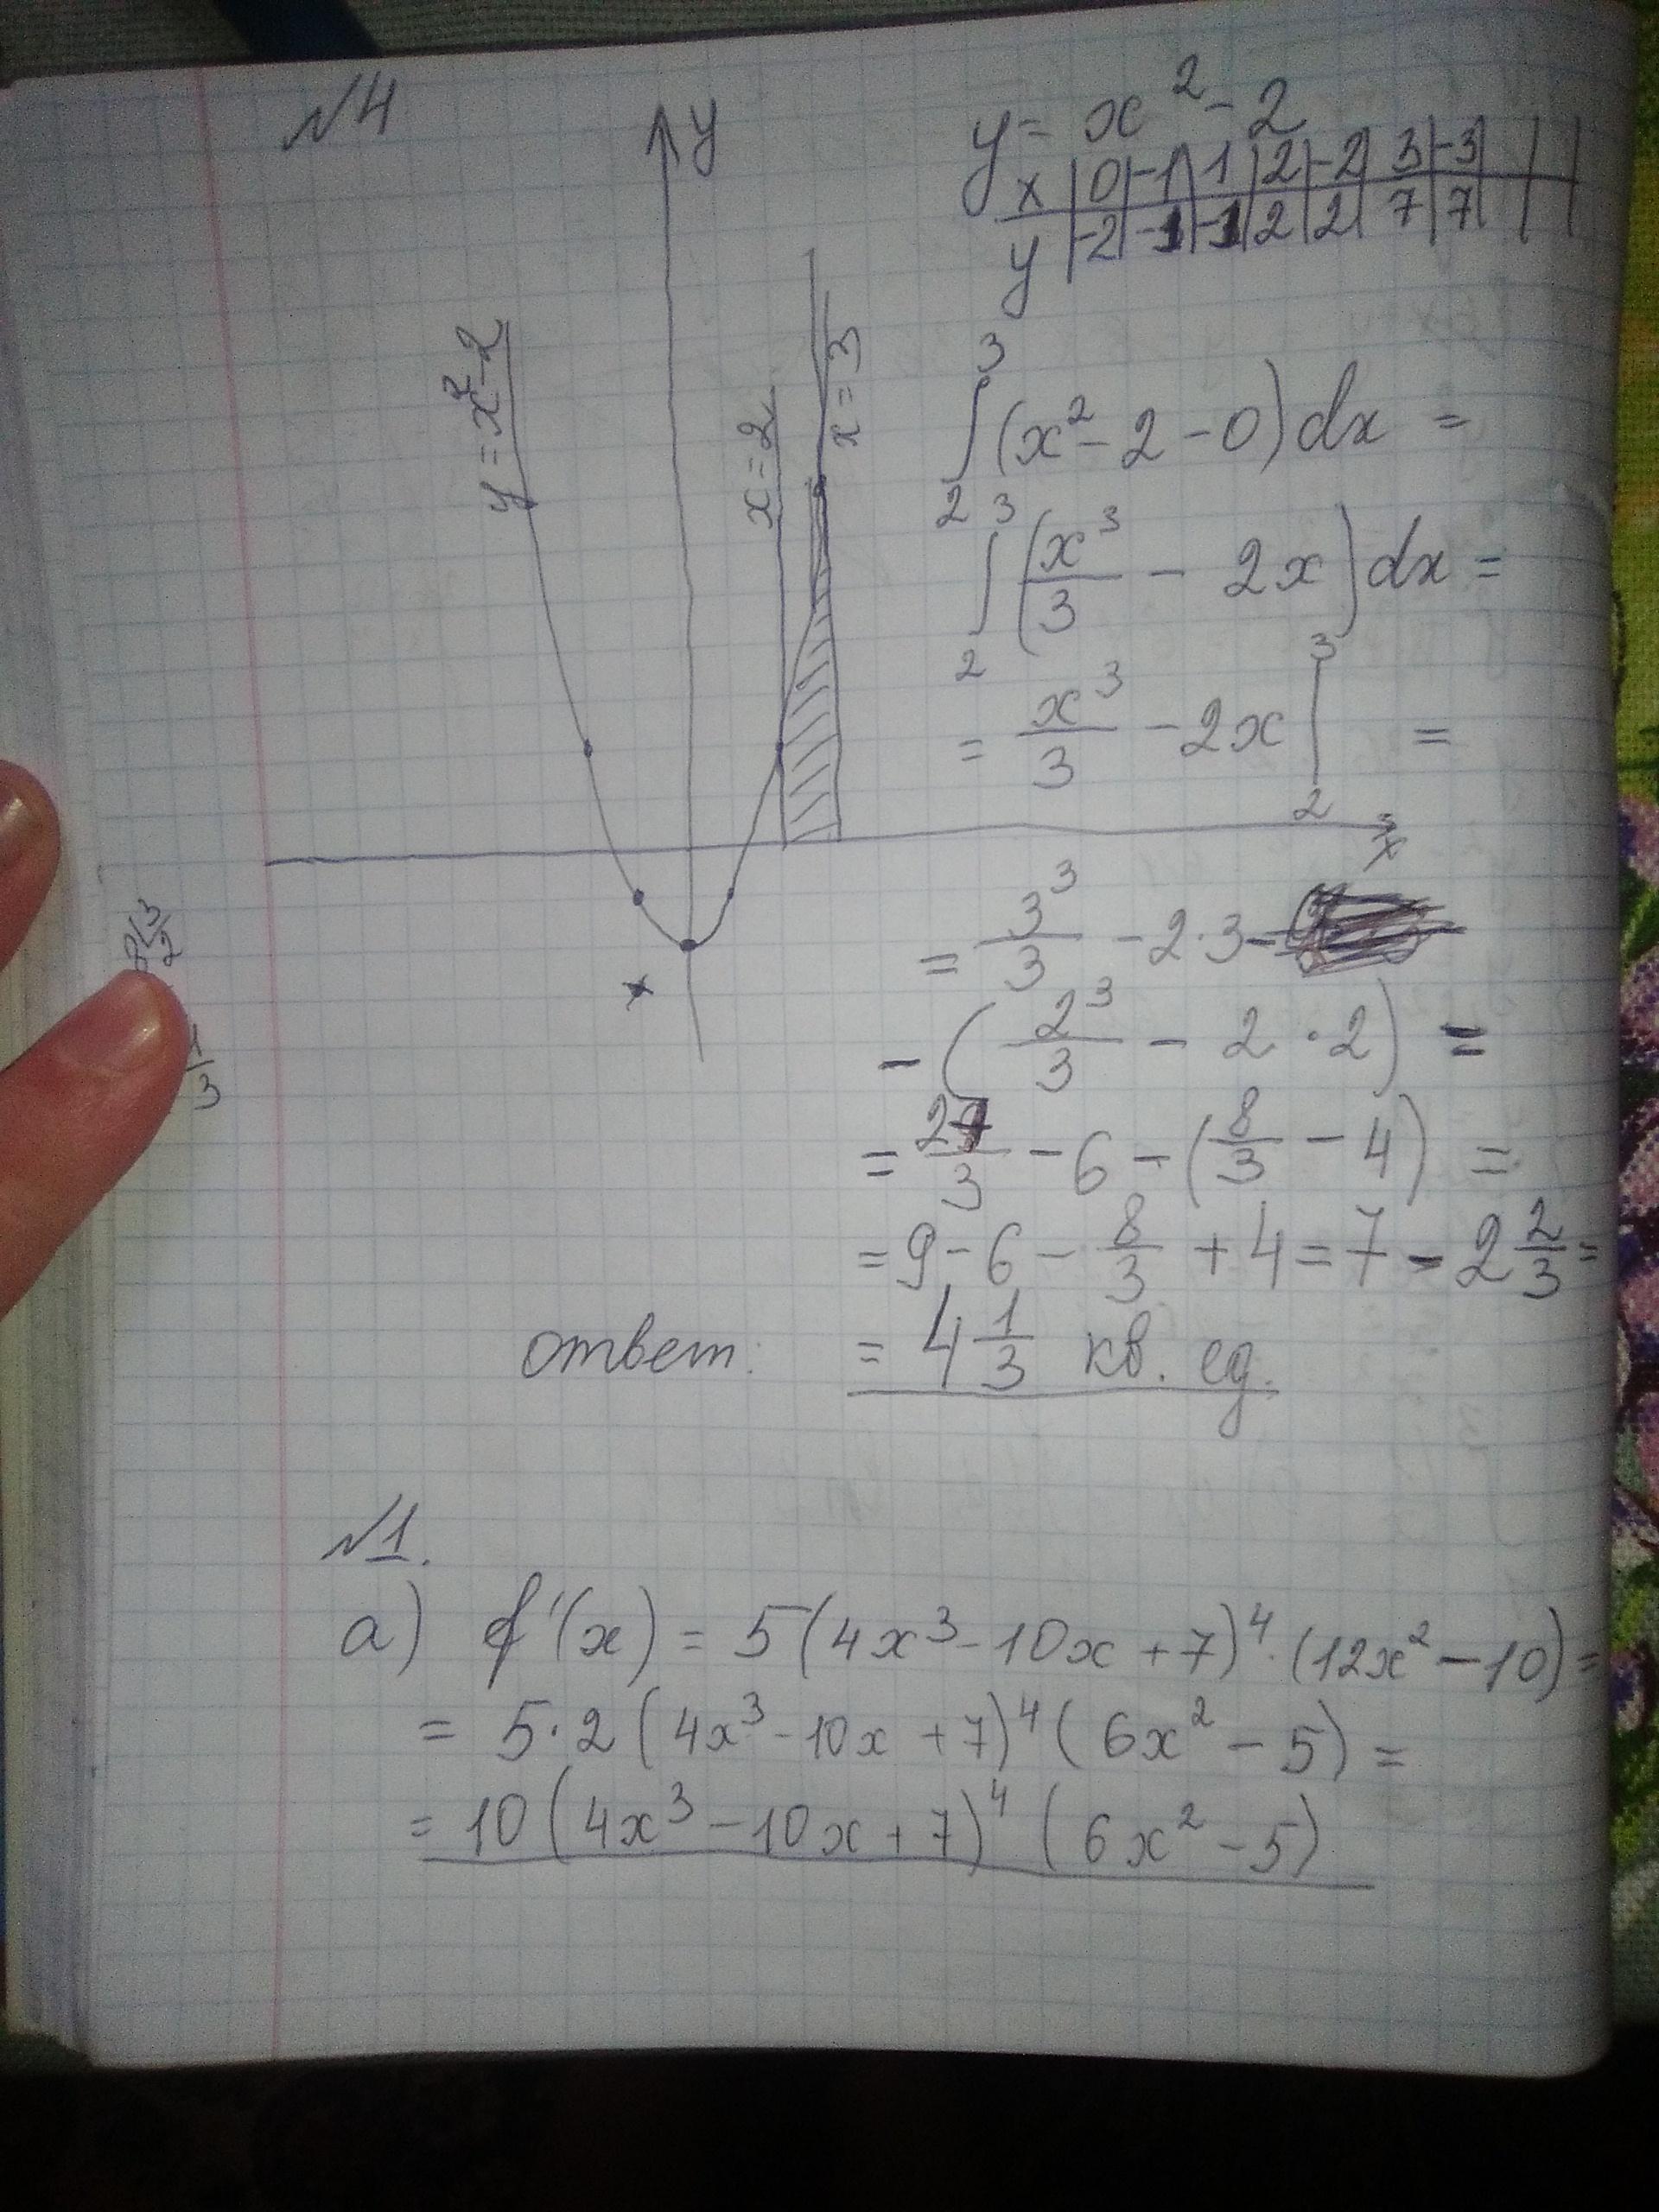 №4
y
y = x² - 2
x | 0 | -1 | 1 | 2 | -2 | 3 | -3 |
y | -2 | -1 | -1 | 2 | 2 | 7 | 7 |
y = x² - 2
x = 2
x = 3
∫₂³ (x² - 2 - 0) dx =
∫₂³ (x³/3 - 2x) dx =
= x³/3 - 2x |₂³ =
x
= 3³/3 - 2·3 -
- (2³/3 - 2·2) =
= 27/3 - 6 - (8/3 - 4) =
= 9 - 6 - 8/3 + 4 = 7 - 2 2/3 =
ответ: = 4 1/3 кв. ед.
№1.
а) f'(x) = 5(4x³ - 10x + 7)⁴·(12x² - 10) =
= 5·2(4x³ - 10x + 7)⁴(6x² - 5) =
= 10(4x³ - 10x + 7)⁴(6x² - 5)